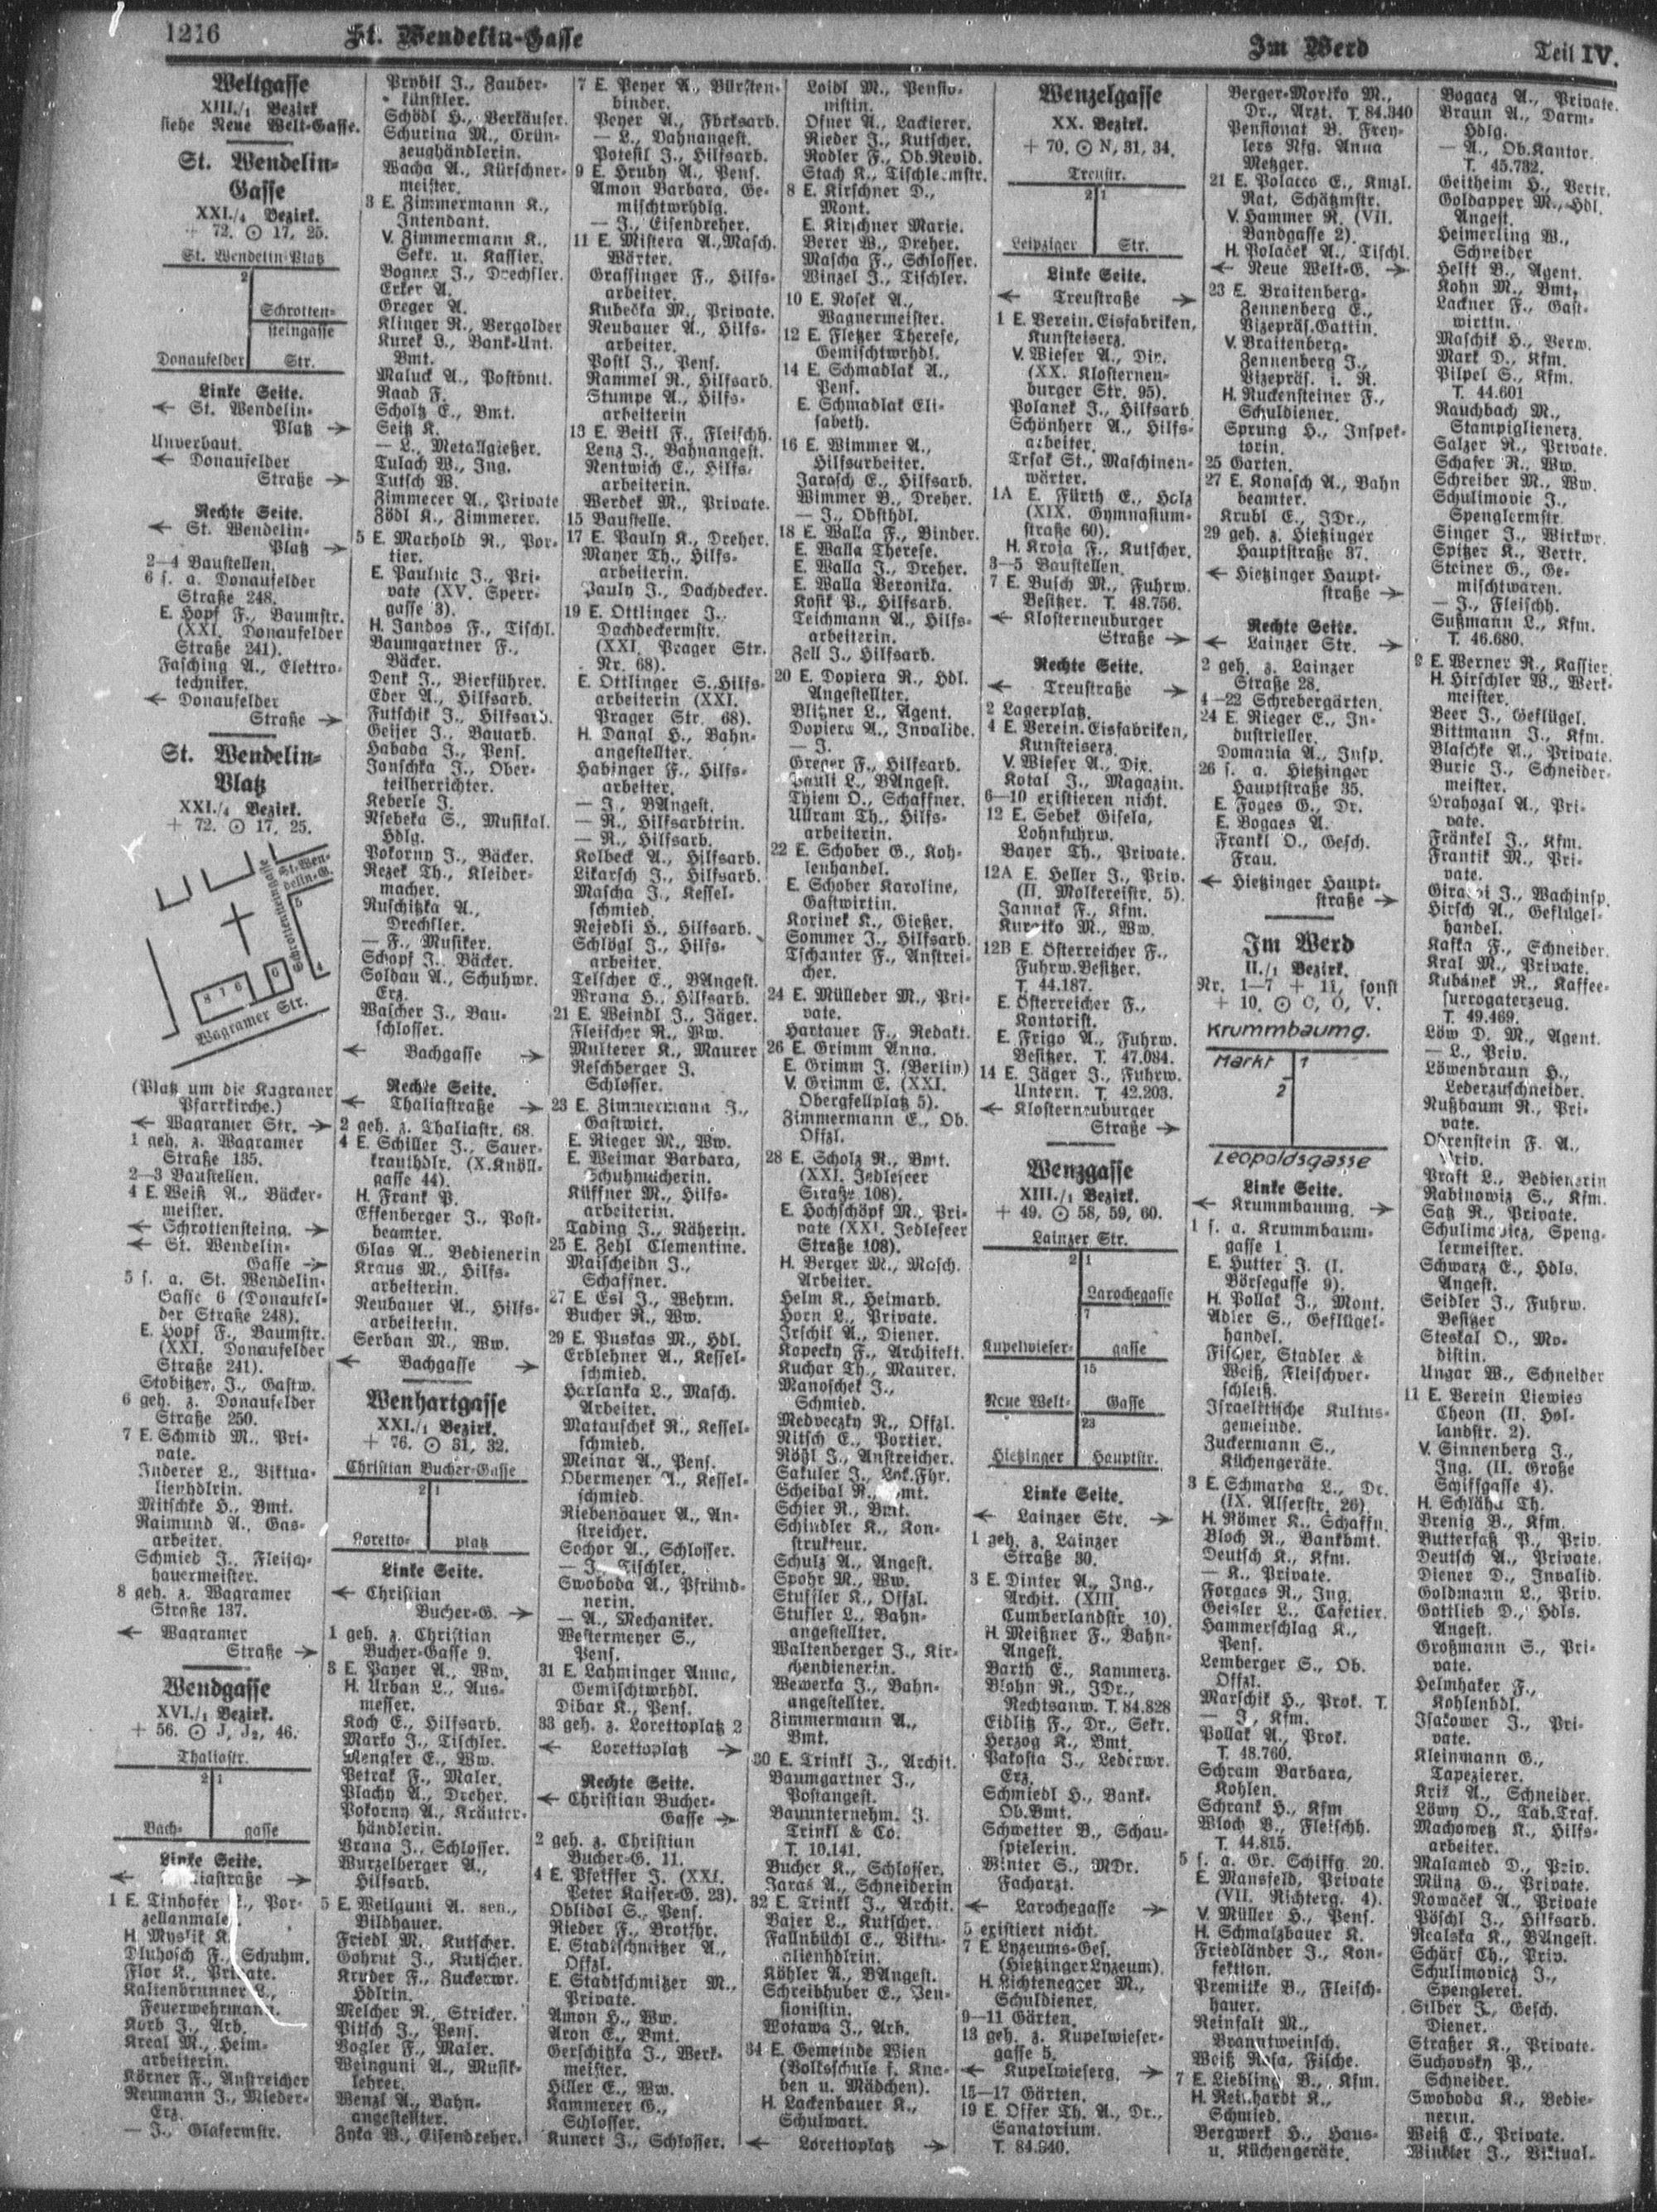 1216
St. Wendelin-Gasse
Im Werd
Teil IV.
Weltgasse
XIII./1 Bezirk
siehe Neue Welt-Gasse.
St. Wendelin-
Gasse
XXI./4 Bezirk.
+ 72. ⊙ 17, 25.
St. Wendelin-Platz
2
Schrotten-
steingasse
Donaufelder Str.
Linke Seite.
← St. Wendelin-
Platz →
Unverbaut.
← Donaufelder
Straße →
Rechte Seite.
← St. Wendelin-
Platz →
2—4 Baustellen.
6 s. a. Donaufelder
Straße 248.
E. Hopf F., Baumstr.
(XXI. Donaufelder
Straße 241).
Fasching A., Elektro-
techniker.
← Donaufelder
Straße →
St. Wendelin-
Platz
XXI./4 Bezirk.
+ 72. ⊙ 17, 25.
St. Wen-
delin-G.
Schrottensteingasse
5
4
8 7 6
Wagramer Str.
(Platz um die Kagraner
Pfarrkirche.)
← Wagramer Str. →
1 geh. z. Wagramer
Straße 135.
2—3 Baustellen.
4 E. Weiß A., Bäcker-
meister.
← Schrottensteing. →
← St. Wendelin-
Gasse →
5 s. a. St. Wendelin-
Gasse 6 (Donaufel-
der Straße 248).
E. Hopf F., Baumstr.
(XXI. Donaufelder
Straße 241).
Stobitzer J., Gastw.
6 geh. z. Donaufelder
Straße 250.
7 E. Schmid M., Pri-
vate.
Inderer L., Viktua-
lienhdlrin.
Mitschke H., Bmt.
Raimund A., Gas-
arbeiter.
Schmied J., Fleisch-
hauermeister.
8 geh. z. Wagramer
Straße 137.
← Wagramer
Straße →
Wendgasse
XVI./1 Bezirk.
+ 56. ⊙ J, J2, 46.
Thaliastr.
2 1
Bach- gasse
Linke Seite.
← iastraße →
1 E. Tinhofer Por-
zellanmale
H. Myslik K.
Dluhosch F., Schuhm.
Flor K., Private.
Kaltenbrunner L.,
Feuerwehrmann.
Korb J., Arb.
Kreal M., Heim-
arbeiterin.
Körner F., Anstreicher
Neumann J., Mieder-
Erz.
— J., Glasermstr.
Prybil J., Zauber-
künstler.
Schödl H., Verkäufer.
Schurina M., Grün-
zeughändlerin.
Wacha A., Kürschner-
meister.
3 E. Zimmermann K.,
Intendant.
V. Zimmermann K.,
Sekr. u. Kassier.
Bogner J., Drechsler.
Erker A.
Greger A.
Klinger R., Vergolder
Kurek L., Bank-Unt.
Bmt.
Maluck A., Postbmt.
Raad F.
Scholtz E., Bmt.
Seitz K.
— L., Metallgießer.
Tulach W., Ing.
Tutsch W.
Zimmerer A., Private
Zödl K., Zimmerer.
5 E. Marhold R., Por-
tier.
E. Paulnic J., Pri-
vate (XV. Sperr-
gasse 3).
H. Jandos F., Tischl.
Baumgartner F.,
Bäcker.
Denk J., Bierführer.
Eder A., Hilfsarb.
Futschik J., Hilfsarb.
Geijer J., Bauarb.
Habada J., Pens.
Janschka J., Ober-
teilherrichter.
Keberle J.
Nsebeka S., Musikal.
Hdlg.
Pokorny J., Bäcker.
Rezek Th., Kleider-
macher.
Ruschitzka A.,
Drechsler.
— F., Musiker.
Schopf J., Bäcker.
Soldau A., Schuhwr.
Erz.
Wascher J., Bau-
schlosser.
← Bachgasse →
Rechte Seite.
← Thaliastraße →
2 geh. z. Thaliastr. 68.
4 E. Schiller J., Sauer-
krauthdlr. (X. Knöll-
gasse 44).
H. Frank P.
Effenberger J., Post-
beamter.
Glas A., Bedienerin
Kraus M., Hilfs-
arbeiterin.
Neubauer A., Hilfs-
arbeiterin.
Serban M., Ww.
← Bachgasse →
Wenhartgasse
XXI./1 Bezirk.
+ 76. ⊙ 31, 32.
Christian Bucher-Gasse
2 1
Loretto- platz
Linke Seite.
← Christian
Bucher-G. →
1 geh. z. Christian
Bucher-Gasse 9.
3 E. Payer A., Ww.
H. Urban L., Aus-
messer.
Koch E., Hilfsarb.
Marko J., Tischler.
Mengler E., Ww.
Petrak F., Maler.
Plachy A., Dreher.
Pokorny A., Kräuter-
händlerin.
Vrana J., Schlosser.
Wurzelberger A.,
Hilfsarb.
5 E. Weilguni A. sen.,
Bildhauer.
Friedl M., Kutscher.
Gohrut J., Kutscher.
Kruder F., Zuckerwr.
Hdlrin.
Melcher R., Stricker.
Pitsch J., Pens.
Vogler F., Maler.
Weinguni A., Musik-
lehrer.
Wenzl A., Bahn-
angestellter.
Zyka W., Eisendreher.
7 E. Peyer A., Bürsten-
binder.
Peyer A., Fbrksarb.
— L., Bahnangest.
Potesil J., Hilfsarb.
9 E. Hruby A., Pens.
Amon Barbara, Ge-
mischtwrhdlg.
— J., Eisendreher.
11 E. Mistera A., Masch.
Wärter.
Grassinger F., Hilfs-
arbeiter.
Kubecka M., Private.
Neubauer A., Hilfs-
arbeiter.
Postl J., Pens.
Rammel R., Hilfsarb.
Stumpe A., Hilfs-
arbeiterin
13 E. Beitl F., Fleischh.
Lenz J., Bahnangest.
Nentwich E., Hilfs-
arbeiterin.
Werdek M., Private.
15 Baustelle.
17 E. Pauly K., Dreher.
Mayer Th., Hilfs-
arbeiterin.
Pauly J., Dachdecker.
19 E. Ottlinger J.,
Dachdeckermstr.
(XXI. Prager Str.
Nr. 68).
E. Ottlinger S., Hilfs-
arbeiterin (XXI.
Prager Str. 68).
H. Dangl H., Bahn-
angestellter.
Habinger F., Hilfs-
arbeiter.
— J., BAngest.
— R., Hilfsarbtrin.
— R., Hilfsarb.
Kolbeck A., Hilfsarb.
Likarsch J., Hilfsarb.
Mascha J., Kessel-
schmied.
Nejedli H., Hilfsarb.
Schlögl J., Hilfs-
arbeiter.
Telscher E., BAngest.
Wrana H., Hilfsarb.
21 E. Weindl J., Jäger.
Fleischer R., Ww.
Multerer K., Maurer
Reschberger J.
Schlosser.
23 E. Zimmermann J.,
Gastwirt.
E. Rieger M., Ww.
E. Weimar Barbara,
Schuhmacherin.
Küffner M., Hilfs-
arbeiterin.
Tading J., Näherin.
25 E. Zehl Clementine.
Maischeidn J.,
Schaffner.
27 E. Esl J., Wehrm.
Bucher R., Ww.
29 E. Puskas M., Hdl.
Erblehner A., Kessel-
schmied.
Harlanka L., Masch.
Arbeiter.
Matauschek R., Kessel-
schmied.
Meinar A., Pens.
Obermeyer A., Kessel-
schmied.
Riebenbauer A., An-
streicher.
Sochor A., Schlosser.
— J., Tischler.
Swoboda A., Pfründ-
nerin.
— A., Mechaniker.
Westermeyer S.,
Pens.
31 E. Lahminger Anna,
Gemischtwrhdl.
Dibar K., Pens.
33 geh. z. Lorettoplatz 2
← Lorettoplatz →
Rechte Seite.
← Christian Bucher-
Gasse →
2 geh. z. Christian
Bucher-G. 11.
4 E. Pfeiffer J. (XXI.
Peter Kaiser-G. 23).
Oblidol S., Pens.
Rieder F., Brotfhr.
E. Stadtschnitzer A.,
Offzl.
E. Stadtschmitzer M.,
Private.
Amon H., Ww.
Aron E., Bmt.
Gerschitzka J., Werk-
meister.
Hiller E., Ww.
Kammerer G.,
Schlosser.
Kunert J., Schlosser.
Loidl M., Pensio-
nistin.
Ofner A., Lackierer.
Rieder J., Kutscher.
Rodler F., Ob.Revid.
Stach K., Tischlermstr.
8 E. Kirschner D.,
Mont.
E. Kirschner Marie.
Berer W., Dreher.
Mascha F., Schlosser.
Winzel J., Tischler.
10 E. Nosek A.,
Wagnermeister.
12 E. Fletzer Therese,
Gemischtwrhdl.
14 E. Schmadlak A.,
Pens.
E. Schmadlak Eli-
sabeth.
16 E. Wimmer A.,
Hilfsarbeiter.
Jarosch E., Hilfsarb.
Wimmer B., Dreher.
— J., Obsthdl.
18 E. Walla F., Binder.
E. Walla Therese.
E. Walla J., Dreher.
E. Walla Veronika.
Kosik P., Hilfsarb.
Teichmann A., Hilfs-
arbeiterin.
Zell J., Hilfsarb.
20 E. Dopiera R., Hdl.
Angestellter.
Blitzner L., Agent.
Dopiera A., Invalide.
— J.
Greger F., Hilfsarb.
Pauli L., BAngest.
Thiem O., Schaffner.
Ullram Th., Hilfs-
arbeiterin.
22 E. Schober G., Koh-
lenhandel.
E. Schober Karoline,
Gastwirtin.
Korinek K., Gießer.
Sommer J., Hilfsarb.
Tschanter F., Anstrei-
cher.
24 E. Mülleder M., Pri-
vate.
Hartauer F., Redakt.
26 E. Grimm Anna.
E. Grimm J. (Berlin)
V. Grimm E. (XXI.
Obergfellplatz 5).
Zimmermann E., Ob.
Offzl.
28 E. Scholz R., Bmt.
(XXI. Jedleseer
Straße 108).
E. Hochschöpf M., Pri-
vate (XXI. Jedleseer
Straße 108).
H. Berger M., Masch.
Arbeiter.
Helm K., Heimarb.
Horn L., Private.
Irschil A., Diener.
Kopecky F., Architekt.
Kuchar Th., Maurer.
Manoschek J.,
Schmied.
Medveczky R., Offzl.
Nitsch E., Portier.
Rößl J., Anstreicher.
Sakuler J., Lok.Fhr.
Scheibal R., mt.
Schier R., Bmt.
Schindler K., Kon-
strukteur.
Schulz A., Angest.
Spohr M., Ww.
Stuffler K., Offzl.
Stufler L., Bahn-
angestellter.
Waltenberger J., Kir-
chendienerin.
Wewerka J., Bahn-
angestellter.
Zimmermann A.,
Bmt.
30 E. Trinkl J., Archit.
Baumgartner J.,
Postangest.
Bauunternehm. J.
Trinkl & Co.
T. 10.141.
Bucher K., Schlosser.
Jaras A., Schneiderin
32 E. Trinkl J., Archit.
Bajer L., Kutscher.
Fallnbüchl E., Viktu-
alienhdlrin.
Köhler A., BAngest.
Schreibhuber E., Pen-
sionistin.
Wotawa J., Arb.
34 E. Gemeinde Wien
(Volksschule f. Kna-
ben u. Mädchen).
H. Lackenbauer K.,
Schulwart.
← Lorettoplatz →
Wenzelgasse
XX. Bezirk.
+ 70. ⊙ N, 31, 34.
Treustr.
2 1
Leipziger Str.
Linke Seite.
← Treustraße →
1 E. Verein. Eisfabriken,
Kunsteiserz.
V. Wieser A., Dir.
(XX. Klosterneu-
burger Str. 95).
Polanek J., Hilfsarb.
Schönherr A., Hilfs-
arbeiter.
Trsak St., Maschinen-
wärter.
1A E. Fürth E., Holz
(XIX. Gymnasium-
straße 60).
H. Kroja F., Kutscher.
3—5 Baustellen.
7 E. Busch M., Fuhrw.
Besitzer. T. 48.756.
← Klosterneuburger
Straße →
Rechte Seite.
← Treustraße →
2 Lagerplatz.
4 E. Verein. Eisfabriken,
Kunsteiserz.
V. Wieser A., Dir.
Kotal J., Magazin.
6—10 existieren nicht.
12 E. Sebek Gisela,
Lohnfuhrw.
Bayer Th., Private.
12A E. Heller J., Priv.
(II. Molkereistr. 5).
Jannak F., Kfm.
Kuratko M., Ww.
12B E. Österreicher F.,
Fuhrw.Besitzer.
T. 44.187.
E. Österreicher F.,
Kontorist.
E. Frigo A., Fuhrw.
Besitzer. T. 47.084.
14 E. Jäger J., Fuhrw.
Untern. T. 42.203.
← Klosterneuburger
Straße →
Wenzgasse
XIII./1 Bezirk.
+ 49. ⊙ 58, 59, 60.
Lainzer Str.
2 1
Larochegasse
7
Kupelwieser- gasse
15
Neue Welt- Gasse
23
Hietzinger Hauptstr.
Linke Seite.
← Lainzer Str. →
1 geh. z. Lainzer
Straße 30.
3 E. Dinter A., Ing.,
Archit. (XIII.
Cumberlandstr. 10).
H. Meißner F., Bahn-
Angest.
Barth E., Kammerz.
Blohn R., JDr.,
Rechtsanw. T. 84.828
Eidlitz F., Dr., Sekr.
Herzog K., Bmt.
Pakosta J., Lederwr.
Erz.
Schmiedl H., Bank-
Ob.Bmt.
Schwetter B., Schau-
spielerin.
Winter S., MDr.
Facharzt.
← Larochegasse →
5 existiert nicht.
7 E. Lyzeums-Ges.
(Hietzinger Lyzeum).
H. Lichtenegger M.,
Schuldiener.
9—11 Gärten.
13 geh. z. Kupelwieser-
gasse 5.
← Kupelwieserg. →
15—17 Gärten.
19 E. Offer Th. A., Dr.,
Sanatorium.
T. 84.340.
Berger-Moritko M.,
Dr., Arzt. T. 84.340
Pensionat B. Frey-
lers Nfg. Anna
Metzger.
21 E. Polacco E., Kmzl.
Rat, Schätzmstr.
V. Hammer R. (VII.
Bandgasse 2).
H. Polaček A., Tischl.
← Neue Welt-G. →
23 E. Braitenberg-
Zennenberg E.,
Vizepräs.Gattin.
V. Braitenberg-
Zennenberg J.,
Vizepräs. i. R.
H. Ruckensteiner F.,
Schuldiener.
Sprung H., Inspek-
torin.
25 Garten.
27 E. Konasch A., Bahn
beamter.
Krubl E., JDr.,
29 geh. z. Hietzinger
Hauptstraße 37.
← Hietzinger Haupt-
straße →
Rechte Seite.
← Lainzer Str. →
2 geh. z. Lainzer
Straße 28.
4—22 Schrebergärten.
24 E. Rieger E., In-
dustrieller.
Domania A., Insp.
26 s. a. Hietzinger
Hauptstraße 35.
E. Foges G., Dr.
E. Bogaes A.
Frankl O., Gesch.
Frau.
← Hietzinger Haupt-
straße →
Im Werd
II./1 Bezirk.
Nr. 1—7 + 11, sonst
+ 10. ⊙ C, O, V.
Krummbaumg.
Markt 1
2
Leopoldsgasse
Linke Seite.
← Krummbaumg. →
1 s. a. Krummbaum-
gasse 1.
E. Hutter J. (I.
Börsegasse 9).
H. Pollak J., Mont.
Adler S., Geflügel-
handel.
Fischer, Stadler &
Weiß, Fleischver-
schleiß.
Israelitische Kultus-
gemeinde.
Zuckermann S.,
Küchengeräte.
3 E. Schmarda L., Dr.
(IX. Alserstr. 26).
H. Römer K., Schaffn.
Bloch R., Bankbmt.
Deutsch K., Kfm.
— K., Private.
Forgacs R., Ing.
Geisler L., Cafetier.
Hammerschlag K.,
Pens.
Lemberger S., Ob.
Offzl.
Marschik H., Prok. T.
— J., Kfm.
Pollak A., Prok.
T. 48.760.
Schram Barbara,
Kohlen.
Schrank H., Kfm
Wloch B., Fleischh.
T. 44.815.
5 s. a. Gr. Schiffg. 20.
E. Mansfeld, Private
(VII. Richterg. 4).
V. Müller H., Pens.
H. Schmalzbauer K.
Friedländer J., Kon-
fektion.
Premitke B., Fleisch-
hauer.
Reinfalt M.,
Branntweinsch.
Weiß Rosa, Fische.
7 E. Liebling B., Kfm.
H. Reinhardt K.,
Schmied.
Bergwerk H., Haus-
u. Küchengeräte.
Bogacz A., Private.
Braun A., Darm-
Hdlg.
— A., Ob.Kantor.
T. 45.732.
Geitheim H., Vertr.
Goldapper M., Hdl.
Angest.
Heimerling W.,
Schneider
Helft B., Agent.
Kohn M., Bmt.
Lackner F., Gast-
wirtin.
Maschik H., Verw.
Mark D., Kfm.
Pilpel S., Kfm.
T. 44.601
Rauchbach M.,
Stampiglienerz.
Salzer R., Private.
Schafer R., Ww.
Schreiber M., Ww.
Schulimovic J.,
Spenglermstr.
Singer J., Wirkwr.
Spitzer K., Vertr.
Steiner G., Ge-
mischtwaren.
— J., Fleischh.
Sußmann L., Kfm.
T. 46.680.
9 E. Werner R., Kassier.
H. Hirschler W., Werk-
meister.
Beer J., Geflügel.
Bittmann J., Kfm.
Blaschke A., Private.
Buric J., Schneider-
meister.
Drahozal A., Pri-
vate.
Fränkel J., Kfm.
Frantik M., Pri-
vate.
J., Wachinsp.
Hirsch A., Geflügel-
handel.
Kafka F., Schneider.
Kral M., Private.
Kubanek R., Kaffee-
surrogaterzeug.
T. 49.469.
Löw D. M., Agent.
— L., Priv.
Löwenbraun H.,
Lederzuschneider.
Nußbaum R., Pri-
vate.
Ohrenstein F. A.,
Priv.
Praft L., Bedienerin
Rabinowiz S., Kfm.
Satz R., Private.
Schulimovicz, Speng-
lermeister.
Schwarz E., Hdls.
Angest.
Seidler J., Fuhrw.
Besitzer
Steskal O., Mo-
distin.
Ungar W., Schneider
11 E. Verein Liewies
Cheon (II. Hol-
landstr. 2).
V. Sinnenberg J.,
Ing. (II. Große
Schiffgasse 4).
H. Schläha Th.
Brenig B., Kfm.
Butterfaß P., Priv.
Deutsch A., Private.
Diener D., Invalid.
Goldmann L., Priv.
Gottlieb D., Hdls.
Angest.
Großmann S., Pri-
vate.
Helmhaker F.,
Kohlenhdl.
Isakower J., Pri-
vate.
Kleinmann G.,
Tapezierer.
Kriz A., Schneider.
Löwy O., Tab.Traf.
Machowetz K., Hilfs-
arbeiter.
Malamed D., Priv.
Münz G., Private.
Nowaček A., Private
Pöschl J., Hilfsarb.
Realska K., BAngest.
Schärf Ch., Priv.
Schulimovicz J.,
Spenglerei.
Silber J., Gesch.
Diener.
Straßer K., Private.
Suchovsky P.,
Schneider.
Swoboda K., Bedie-
nerin.
Weiß E., Private.
Winkler J., Viktual.-